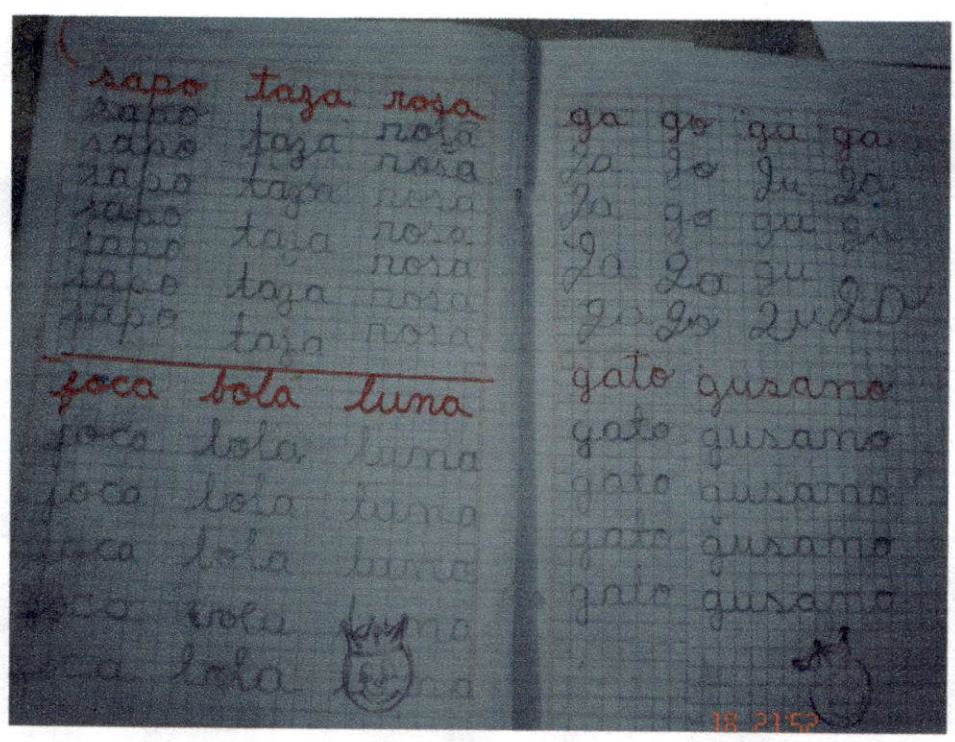 sapo taza rosa
sapo taza rosa
sapo taza rosa
sapo taza rosa
sapo taza rosa
sapo taza rosa
sapo taza rosa
sapo taza rosa
foca bola luna
foca bola luna
foca bola luna
foca bola luna
foca bola luna
foca bola
ga go gu ga
ga go gu ga
ga go gu gu
ga ga gu ga
ga go gu ga
gato gusano
gato gusano
gato gusano
gato gusano
gato gusano
18 21:52